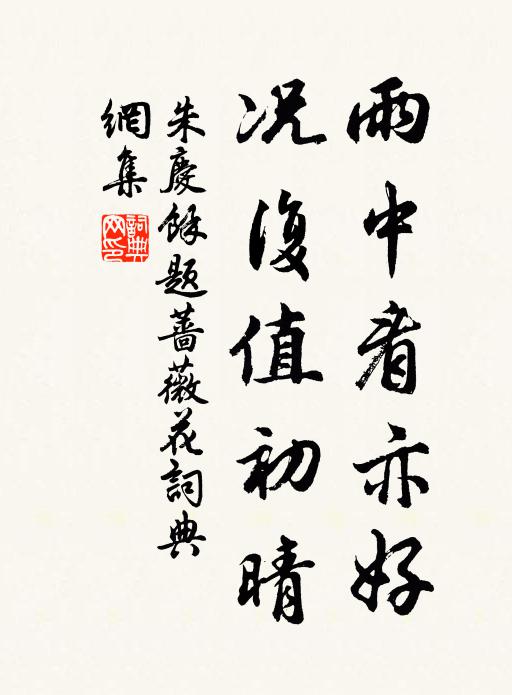 雨中看亦好
况復值初晴
朱慶餘題薔薇花詞典
網集
詞典
网印